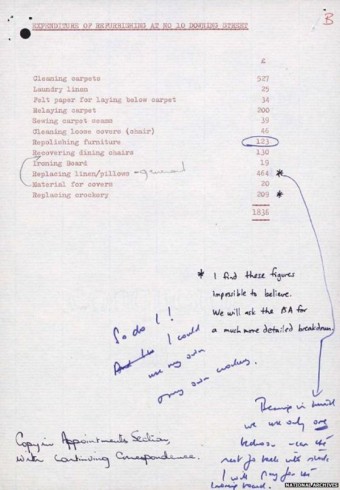 B
EXPENDITURE OF REFURNISHING AT NO 10 DOWNING STREET
£
Cleaning carpets 527
Laundry linen 25
Felt paper for laying below carpet 34
Relaying carpet 200
Sewing carpet seams 39
Cleaning loose covers (chair) 46
Repolishing furniture 123
Recovering dining chairs 130
Ironing Board 19
Replacing linen/pillows - general 464 *
Material for covers 20
Replacing crockery 209 *
1836
* I find these figures
impossible to believe.
We will ask the PSA for
a much more detailed breakdown.
So do I!!
I could
use my own
my own crockery.
Bearing in mind
we use only one
bedroom
the
rest go back
I will pay for the
ironing board.
Copy in Appointments Section,
with Continuing Correspondence.
NATIONAL ARCHIVES